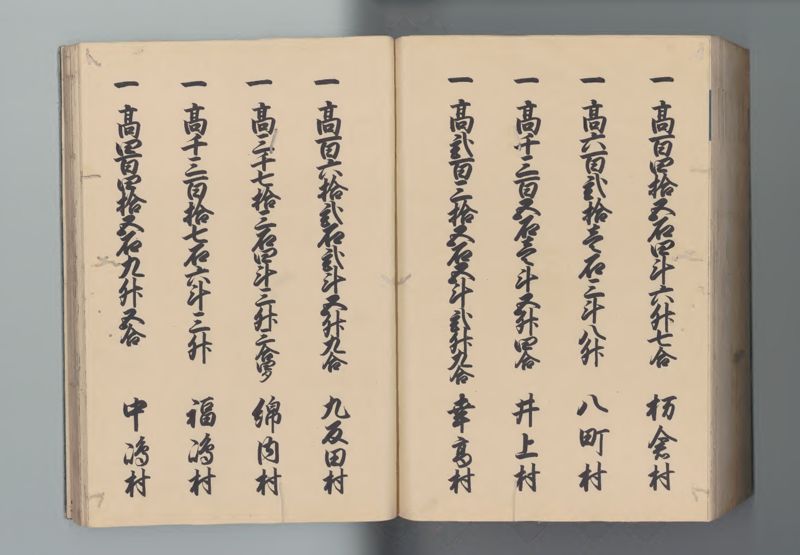 一 高百四拾五石四斗六升七合 栃倉村
一 高六百弐拾壱石三斗八升 八町村
一 高千三百五石壱斗五升四合 井上村
一 高弐百三拾五石五斗弐升九合 幸高村
一 高百六拾弐石弐斗五升九合 九反田村
一 高三千七拾三石四斗三升三合 綿内村
一 高千三百拾七石六斗三升 福嶋村
一 高四百四拾五石九升五合 中嶋村